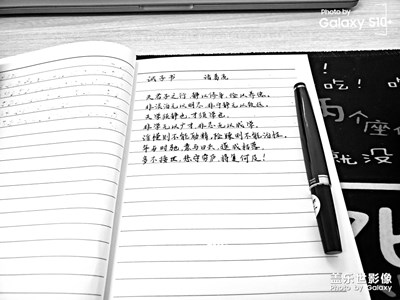 Photo by
Galaxy S10+
诫子书 诸葛亮
夫君子之行，静以修身，俭以养德。
非淡泊无以明志，非宁静无以致远。
夫学须静也，才须学也。
非学无以广才，非志无以成学。
淫慢则不能励精，险躁则不能治性。
年与时驰，意与日去，遂成枯落，
多不接世，悲守穷庐，将复何及！
！
吃！吃
两个座
就没
盖乐世影像
Photo by Galaxy